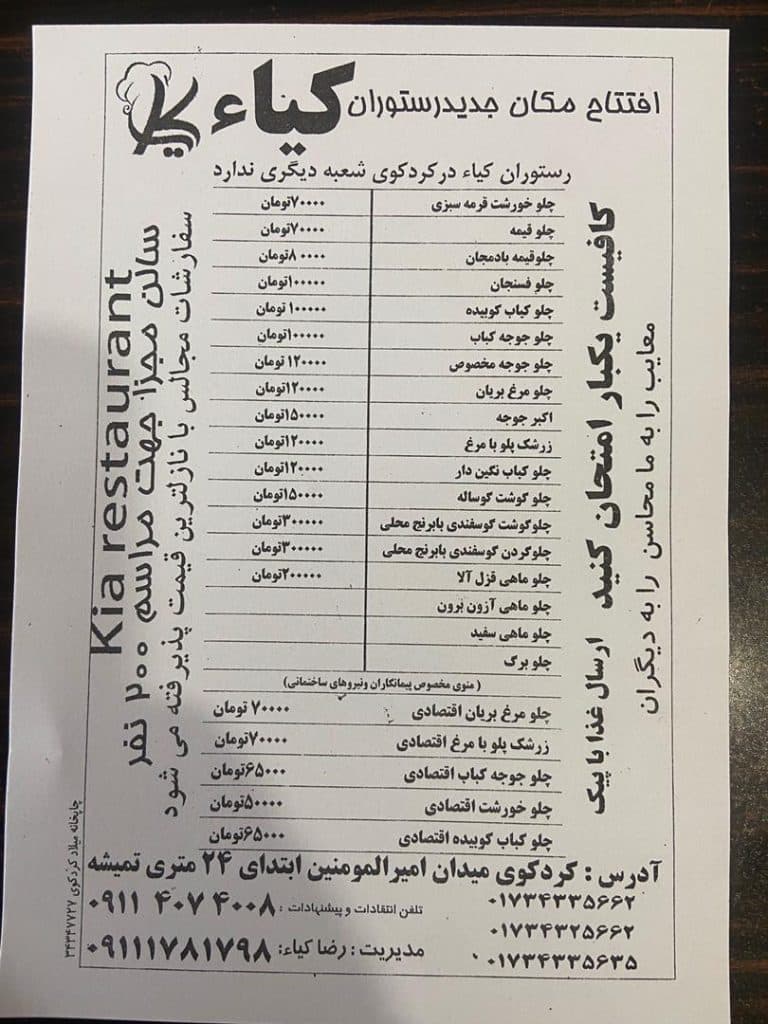 افتتاح مکان جدیدرستوران کیاء
رستوران کیاء درکردکوی شعبه دیگری ندارد
چلو خورشت قرمه سبزی ۷۰۰۰۰تومان
چلو قیمه ۷۰۰۰۰تومان
چلوقیمه بادمجان ۸۰۰۰۰تومان
چلو فسنجان ۱۰۰۰۰۰تومان
چلو کباب کوبیده ۱۰۰۰۰۰ تومان
چلو جوجه کباب ۱۰۰۰۰۰تومان
چلو جوجه مخصوص ۱۲۰۰۰۰ تومان
چلو مرغ بریان ۱۲۰۰۰۰تومان
اکبر جوجه ۱۵۰۰۰۰تومان
زرشک پلو با مرغ ۱۲۰۰۰۰تومان
چلو کباب نگین دار ۱۲۰۰۰۰تومان
چلو گوشت گوساله ۱۵۰۰۰۰تومان
چلوگوشت گوسفندی بابرنج محلی ۳۰۰۰۰۰تومان
چلوگردن گوسفندی بابرنج محلی ۳۰۰۰۰۰تومان
چلو ماهی قزل آلا ۲۰۰۰۰۰تومان
چلو ماهی آزون برون
چلو ماهی سفید
چلو برگ
(منوی مخصوص پیمانکاران ونیروهای ساختمانی)
چلو مرغ بریان اقتصادی ۷۰۰۰۰ تومان
زرشک پلو با مرغ اقتصادی ۷۰۰۰۰تومان
چلو جوجه کباب اقتصادی ۶۵۰۰۰تومان
چلو خورشت اقتصادی ۵۰۰۰۰تومان
چلو کباب کوبیده اقتصادی ۶۵۰۰۰تومان
کافیست یکبار امتحان کنید ارسال غذا با پیک
معایب را به ما محاسن را به دیگران
Kia restaurant
سالن مجزا جهت مراسم ۲۰۰ نفر
سفارشات مجالس با نازلترین قیمت پذیرفته می شود
آدرس : کردکوی میدان امیرالمومنین ابتدای ۲۴ متری تمیشه
۰۱۷۳۴۳۳۵۶۶۲
تلفن انتقادات و پیشنهادات : ۰۹۱۱ ۴۰۷ ۴۰۰۸
۰۱۷۳۴۳۲۵۶۶۲
مدیریت : رضا کیاء: ۰۹۱۱۱۷۸۱۷۹۸
۰۱۷۳۴۳۳۵۶۳۵
چاپخانه میلاد کردکوی ۳۴۳۴۷۷۲۷